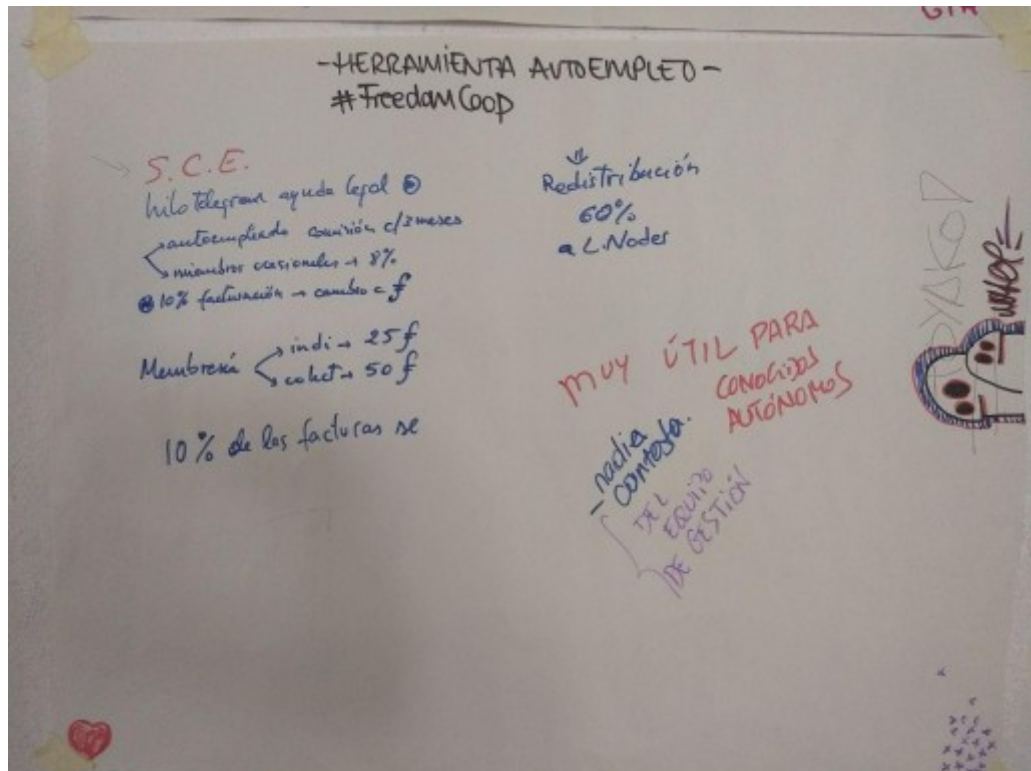 -HERRAMIENTA AUTOEMPLEO-
#FreedomCoop
S.C.E.
hilo telegram ayuda legal
autoempleado comisión c/3 meses
miembros ocasionales → 8%
10% facturación → cambio a ƒ
Membresía
indi → 25 ƒ
colect → 50 ƒ
10% de las facturas se
⇓
Redistribución
60%
a L.Nodes
MUY ÚTIL PARA
CONOCIDOS
AUTÓNOMOS
- nadie
contesta.
DEL
EQUIPO
DE GESTIÓN